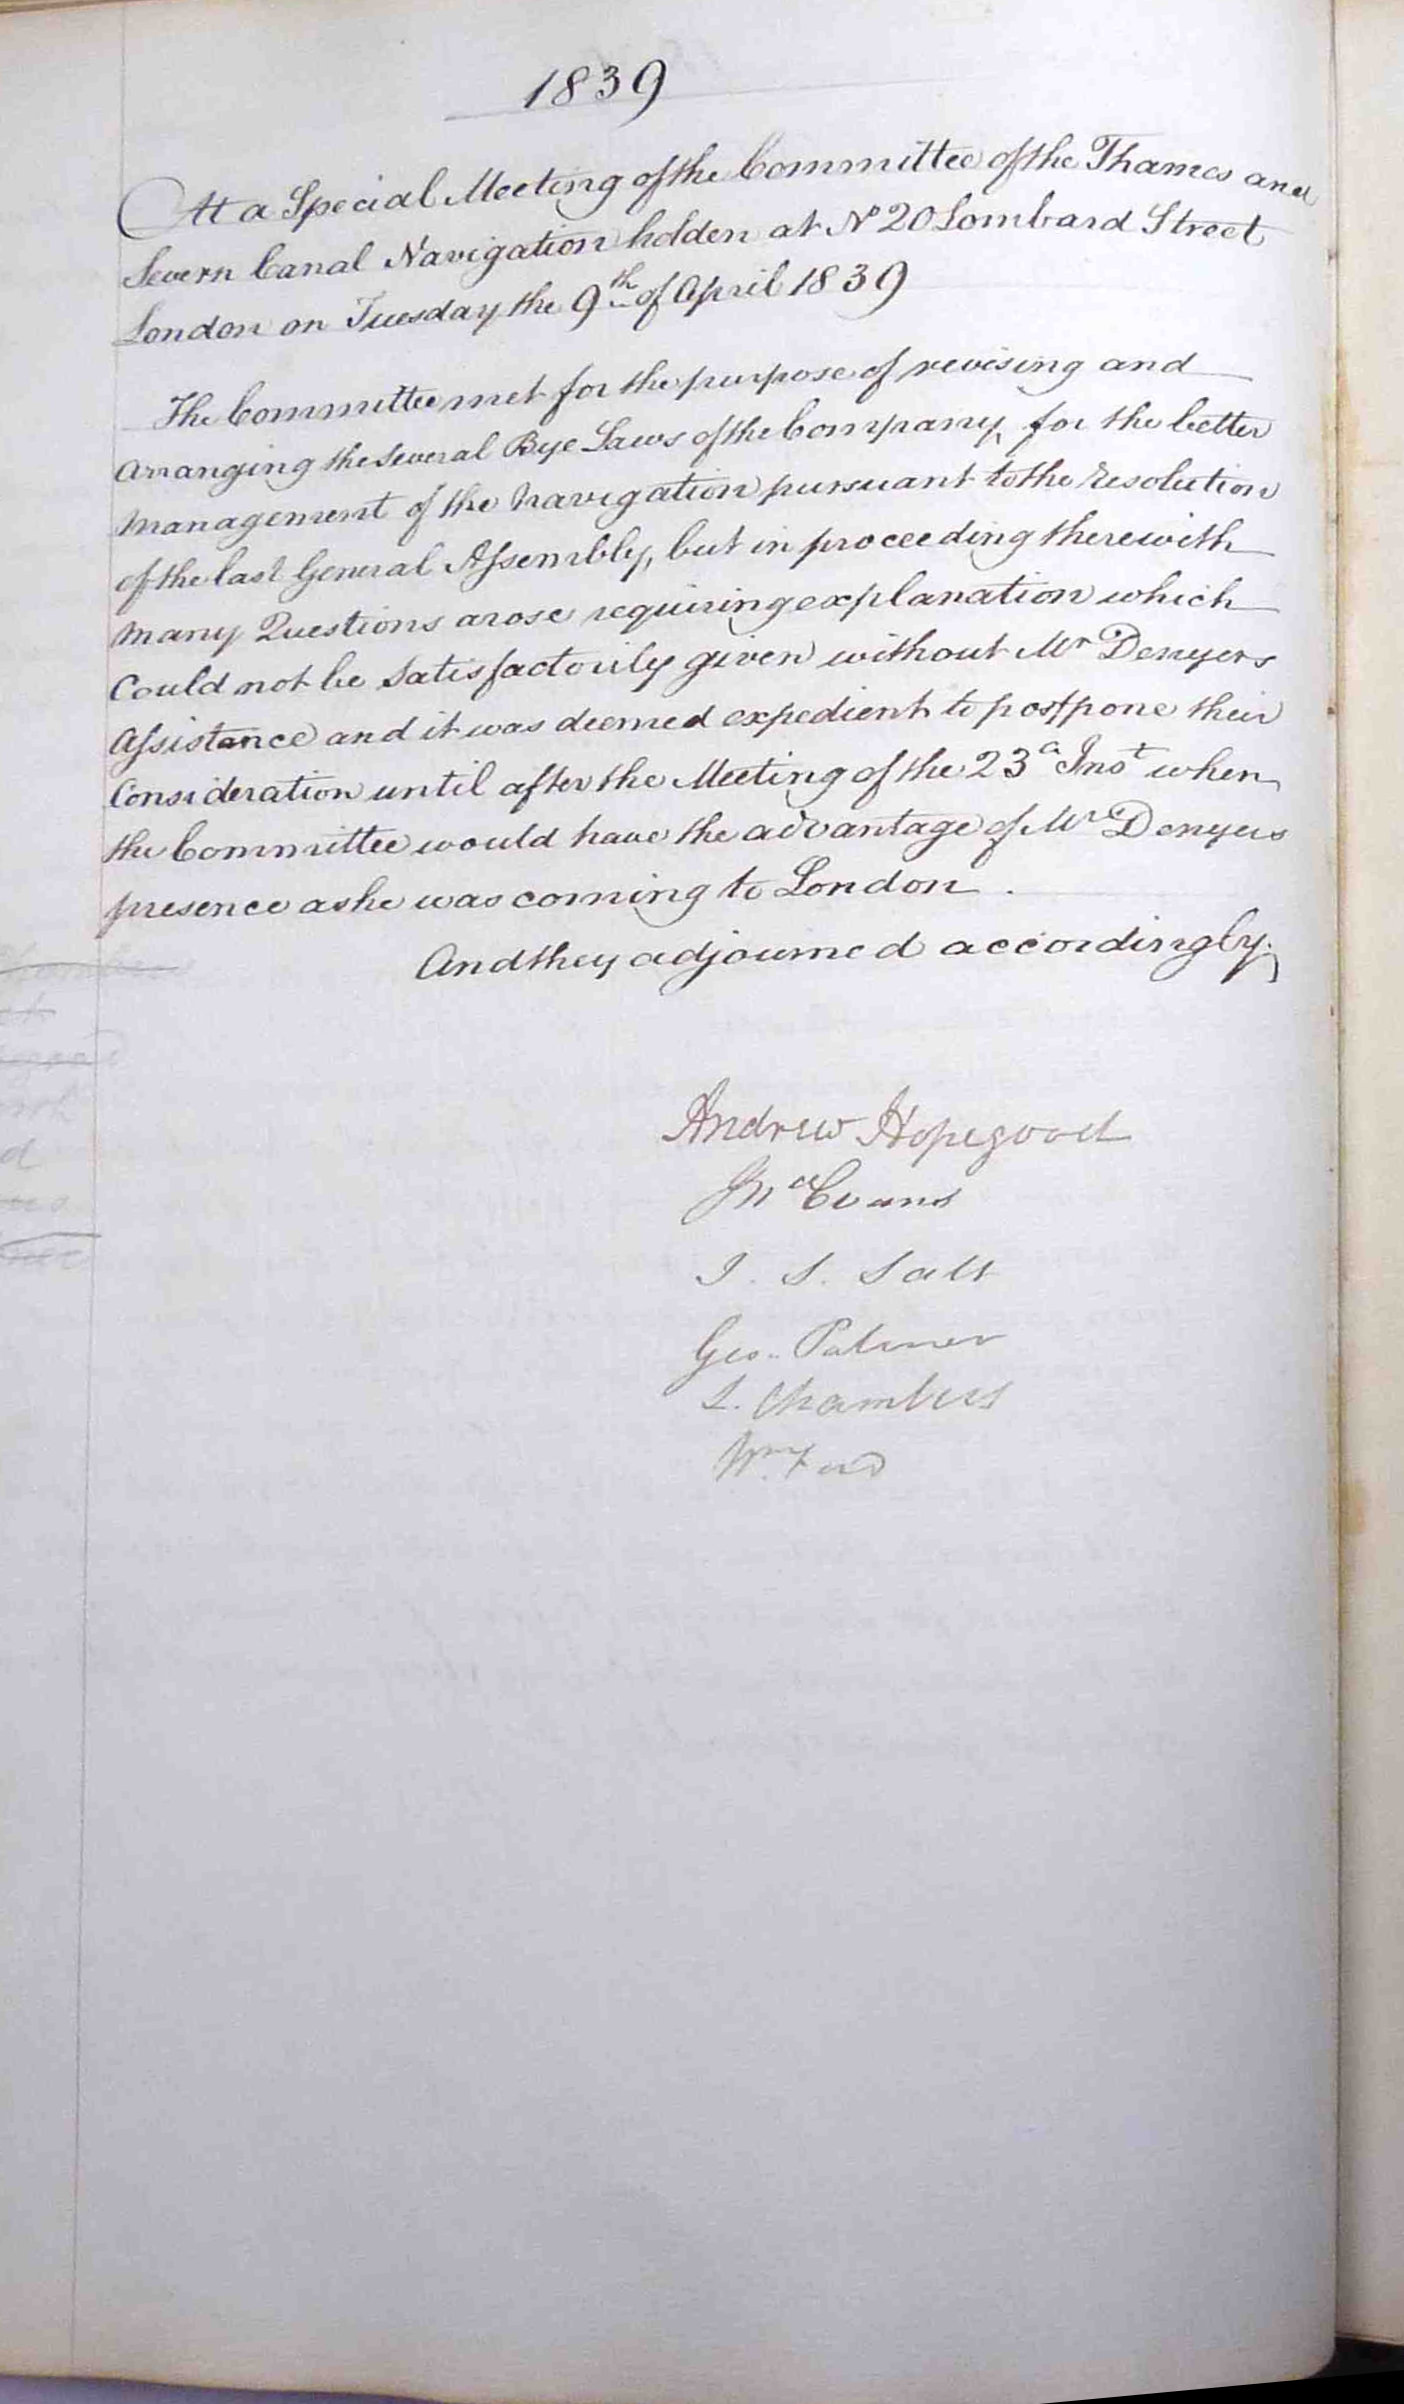 1839
At a Special Meeting of the Committee of the Thames and
Severn Canal Navigation holden at No 20 Lombard Street
London on Tuesday the 9th of April 1839
The Committee met for the purpose of revising and
arranging the several Bye Laws of the Company, for the better
management of the Navigation pursuant to the resolution
of the last General Assembly, but in proceeding therewith
many Questions arose requiring explanation which
could not be satisfactorily given without Mr Denyers
Assistance and it was deemed expedient to postpone their
Consideration until after the Meeting of the 23d Inst when
the Committee would have the advantage of Mr Denyers
presence as he was coming to London.
And they adjourned accordingly.
Andrew Hopegood
Evans
J. S. Salt
Geo. Palmer
L. Chambers
Wm Ford